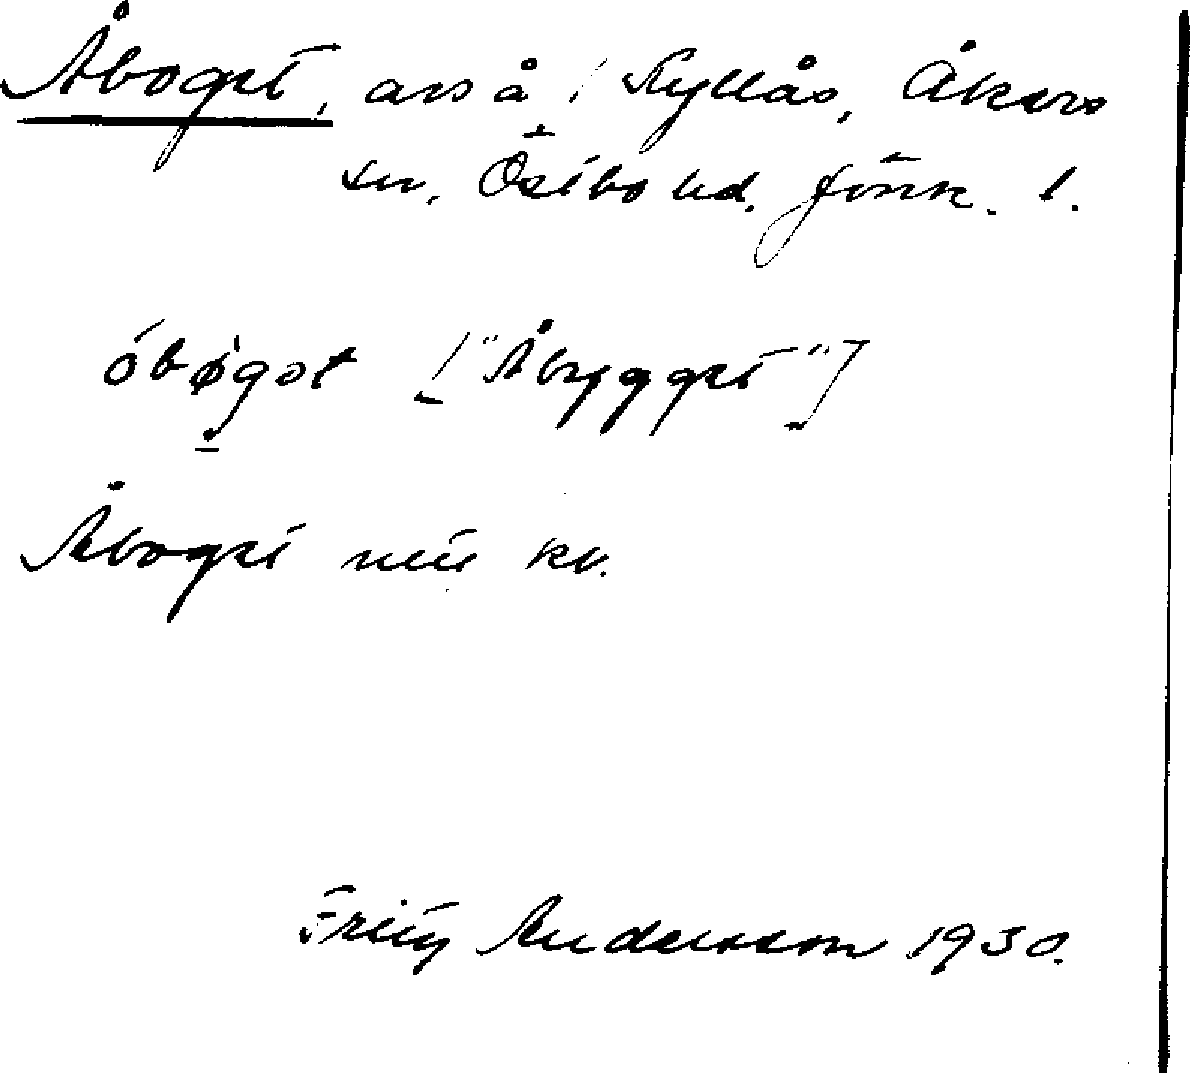 Åboget, avs å i Kyllås, Åkers
sn, Östbo hd. Jönk. l.
óbøgət ["Åbygget"]
Åboget kv.
Fritz Andersson 1930.